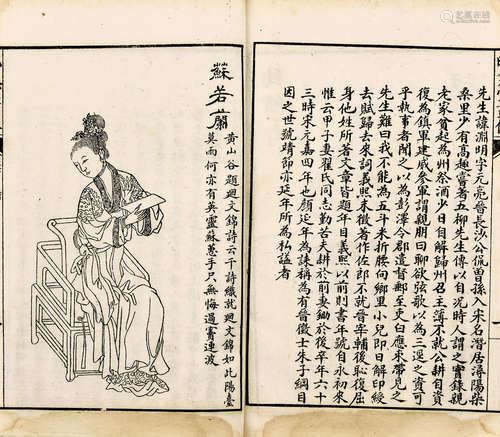 先生諱淵明字元亮晉長沙公侃曾孫入宋名潛居潯陽柴
桑里少有高趣嘗著五柳先生傳以自況時人謂之實錄親
老家貧起為州祭酒少日自解歸州召主簿不就躬耕自資
復為鎮軍建威參軍謂親朋曰聊欲弦歌以為三逕之資可
乎執事者聞之以為彭澤令郡遣督郵至吏白應束帶見之
先生歎曰我不能為五斗米折腰向鄉里小兒即日解印綬
去賦歸去來詞義熙末徵著作佐郎不就晉宰輔後恥復屈
身他姓所著文章皆題年目義熙以前則書年號自永初來
惟云甲子妻翟氏同志勤苦夫耕於前妻鋤於後卒年六十
三時宋元嘉四年也顏延年為誄稱為有晉徵士朱子綱目
因之世號靖節亦延年所為私諡者
蘇若蘭
黃山谷題迴文錦詩云千詩織就迴文錦如此陽臺
莫雨何亦有英靈蘇蕙手只無悔過竇連波